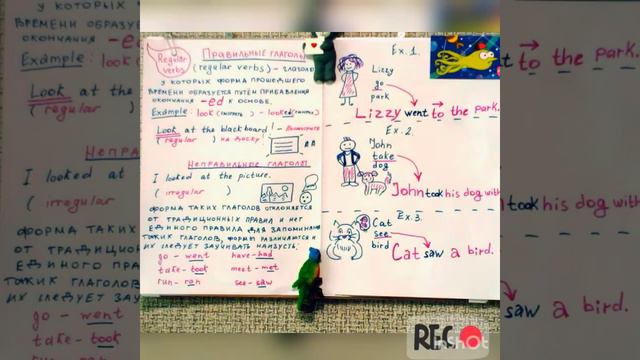 Regular verbs
Правильные глаголы
(regular verbs) – глаголы
у которых форма прошедшего
времени образуется путём прибавления
окончания -ed к основе.
Example: look (смотреть) – looked (смотрел)
Look at the blackboard! – Посмотрите
(regular) на доску!
Неправильные глаголы
I looked at the picture.
(irregular)
Форма таких глаголов отклоняется
от традиционных правил и нет
единого правила для запоминания
таких глаголов, форм различаются и
их следует заучивать наизусть.
go - went have - had
take - took meet - met
run - ran see - saw
Ex. 1.
Lizzy
go
park
Lizzy went to the park.
Ex. 2.
John
take
dog
John took his dog with
Ex. 3.
Cat
see
bird
Cat saw a bird.
времени образуе
окончания -ed
Example: look
Look at the
(regular
I looked at
(irregular
форма таких
от традицион
единого прави
таких глагол
их следует за
go - went
take - took
run - ran
nt to the park.
took his dog with
saw a bird.
REC
InShot